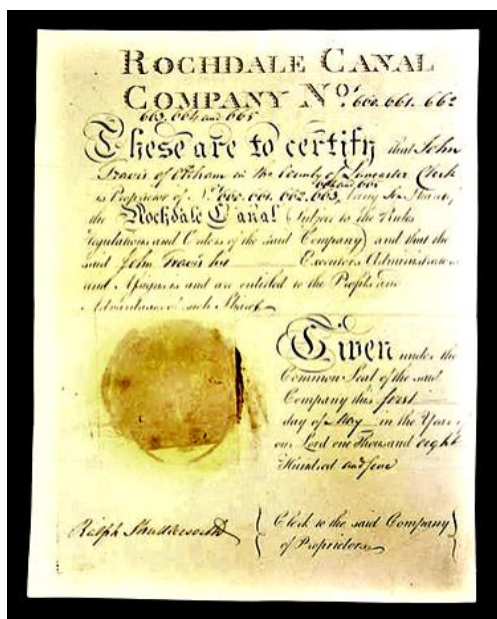 ROCHDALE CANAL
COMPANY Nos. 660. 661. 662
663. 664 and 665
These are to certify that John
Travis of Oldham in the County of Lancaster Clerk
664 and 665
is Proprietor of Nos. 660. 661. 662. 663. being Six Shares,
the Rochdale Canal (Subject to the Rules
regulations and Orders of the said Company) and that the
said John Travis his Executors Administrators
and Assignees and are entitled to the Profits and
Advantages of such Shares
Given under the
Common Seal of the said
Company this first
day of May in the Year of
our Lord one Thousand eight
Hundred and five
Ralph Shuttleworth
Clerk to the said Company
of Proprietors